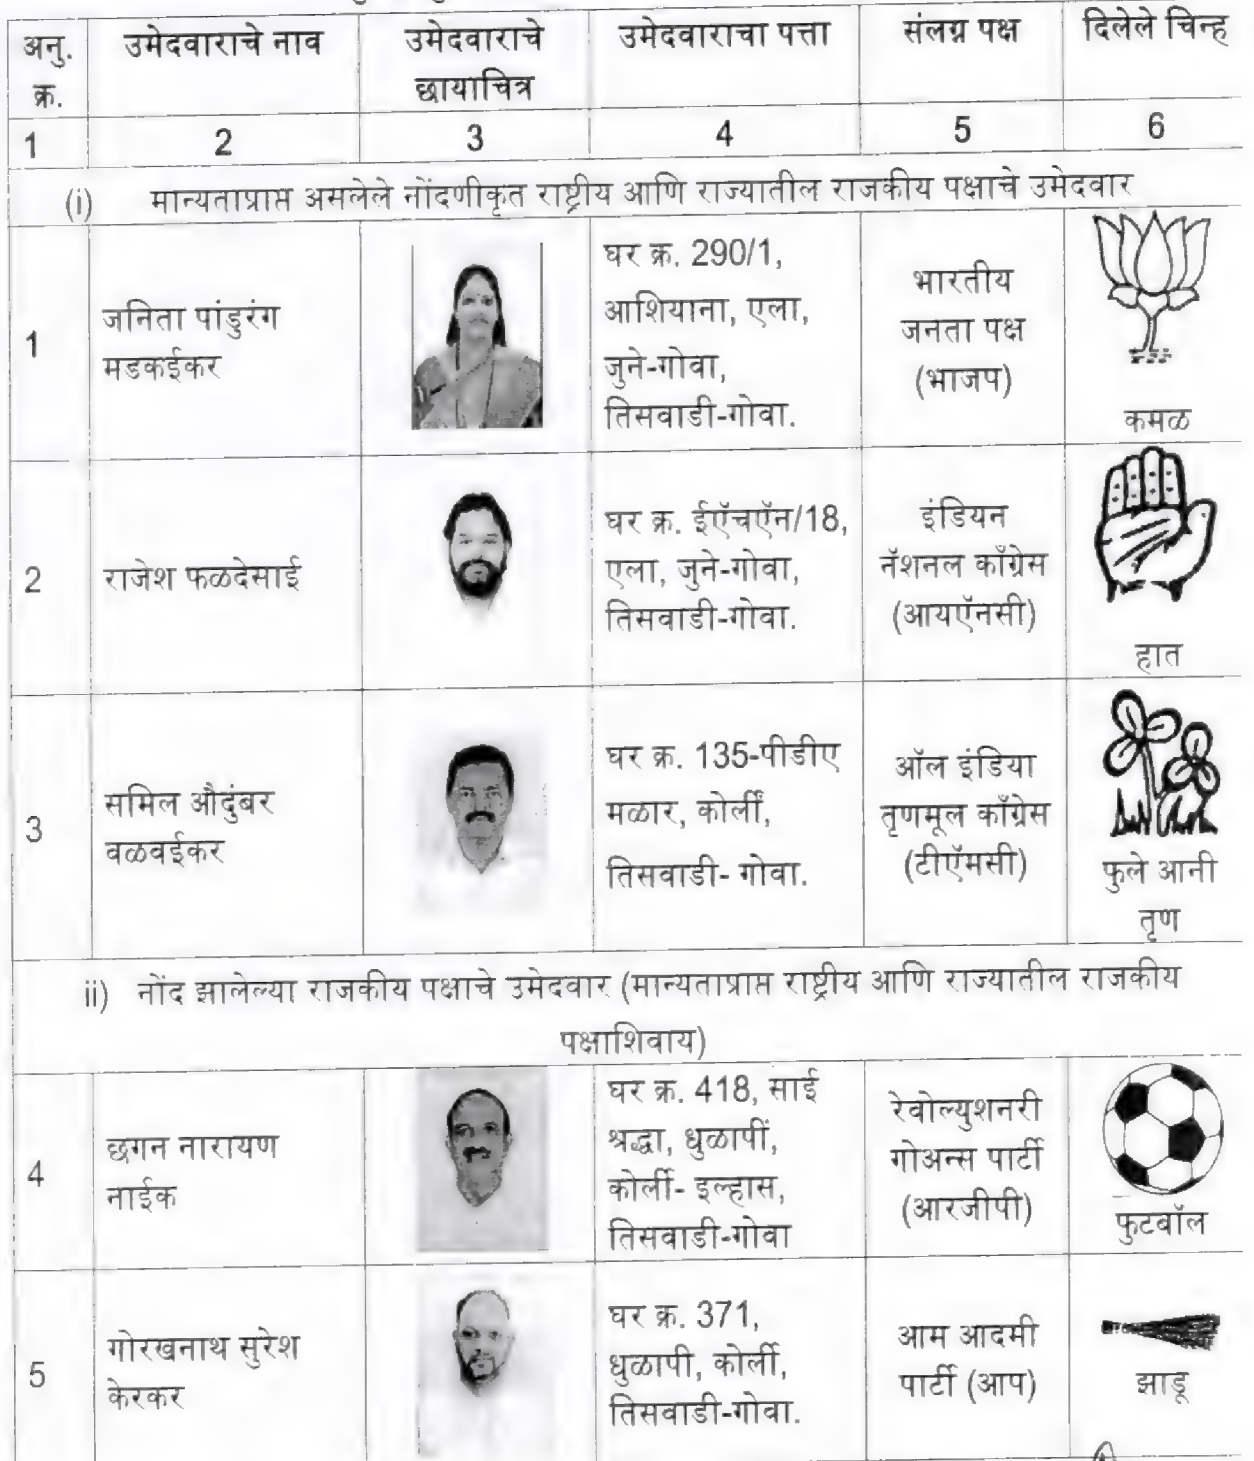 अनु. क्र. उमेदवाराचे नाव उमेदवाराचे छायाचित्र उमेदवाराचा पत्ता संलग्न पक्ष दिलेले चिन्ह
1 2 3 4 5 6
(i) मान्यताप्राप्त असलेले नोंदणीकृत राष्ट्रीय आणि राज्यातील राजकीय पक्षाचे उमेदवार
1
जनिता पांडुरंग
मडकईकर
घर क्र. 290/1,
आशियाना, एला,
जुने-गोवा,
तिसवाडी-गोवा.
भारतीय
जनता पक्ष
(भाजप)
कमळ
2
राजेश फळदेसाई
घर क्र. ईऍचऍन/18,
एला, जुने-गोवा,
तिसवाडी-गोवा.
इंडियन
नॅशनल काँग्रेस
(आयऍनसी)
हात
3
समिल औदुंबर
वळवईकर
घर क्र. 135-पीडीए
मळार, कोर्ली,
तिसवाडी- गोवा.
ऑल इंडिया
तृणमूल काँग्रेस
(टीऍमसी)
फुले आनी
तृण
ii) नोंद झालेल्या राजकीय पक्षाचे उमेदवार (मान्यताप्राप्त राष्ट्रीय आणि राज्यातील राजकीय
पक्षाशिवाय)
4
छगन नारायण
नाईक
घर क्र. 418, साई
श्रद्धा, धुळापीं,
कोर्ली- इल्हास,
तिसवाडी-गोवा
रेवोल्युशनरी
गोअन्स पार्टी
(आरजीपी)
फुटबॉल
5
गोरखनाथ सुरेश
केरकर
घर क्र. 371,
धुळापी, कोर्ली,
तिसवाडी-गोवा.
आम आदमी
पार्टी (आप)
झाडू